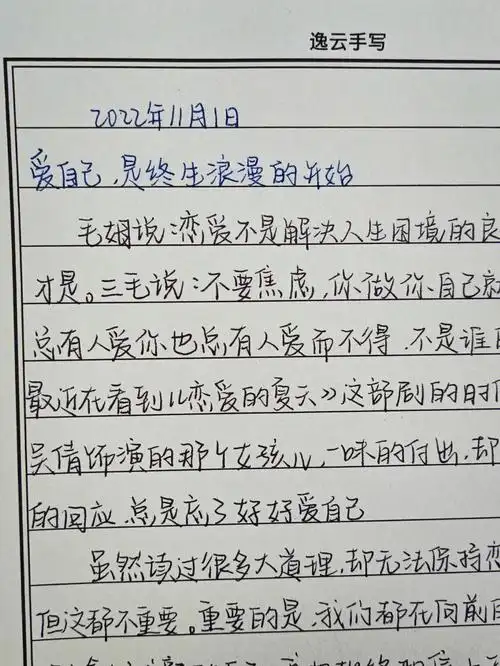 逸云手写
2022年11月1日
爱自己,是终生浪漫的开始
毛姆说:恋爱不是解决人生困境的良
才是。三毛说:不要焦虑,你做你自己就
总有人爱你也总有人爱而不得,不是谁的
最近在看到《恋爱的夏天》这部剧的时候
吴倩饰演的那个女孩儿,一味的付出,却
的回应,总是忘了好好爱自己
虽然读过很多大道理,却无法保持恋
但这都不重要。重要的是,我们都在向前